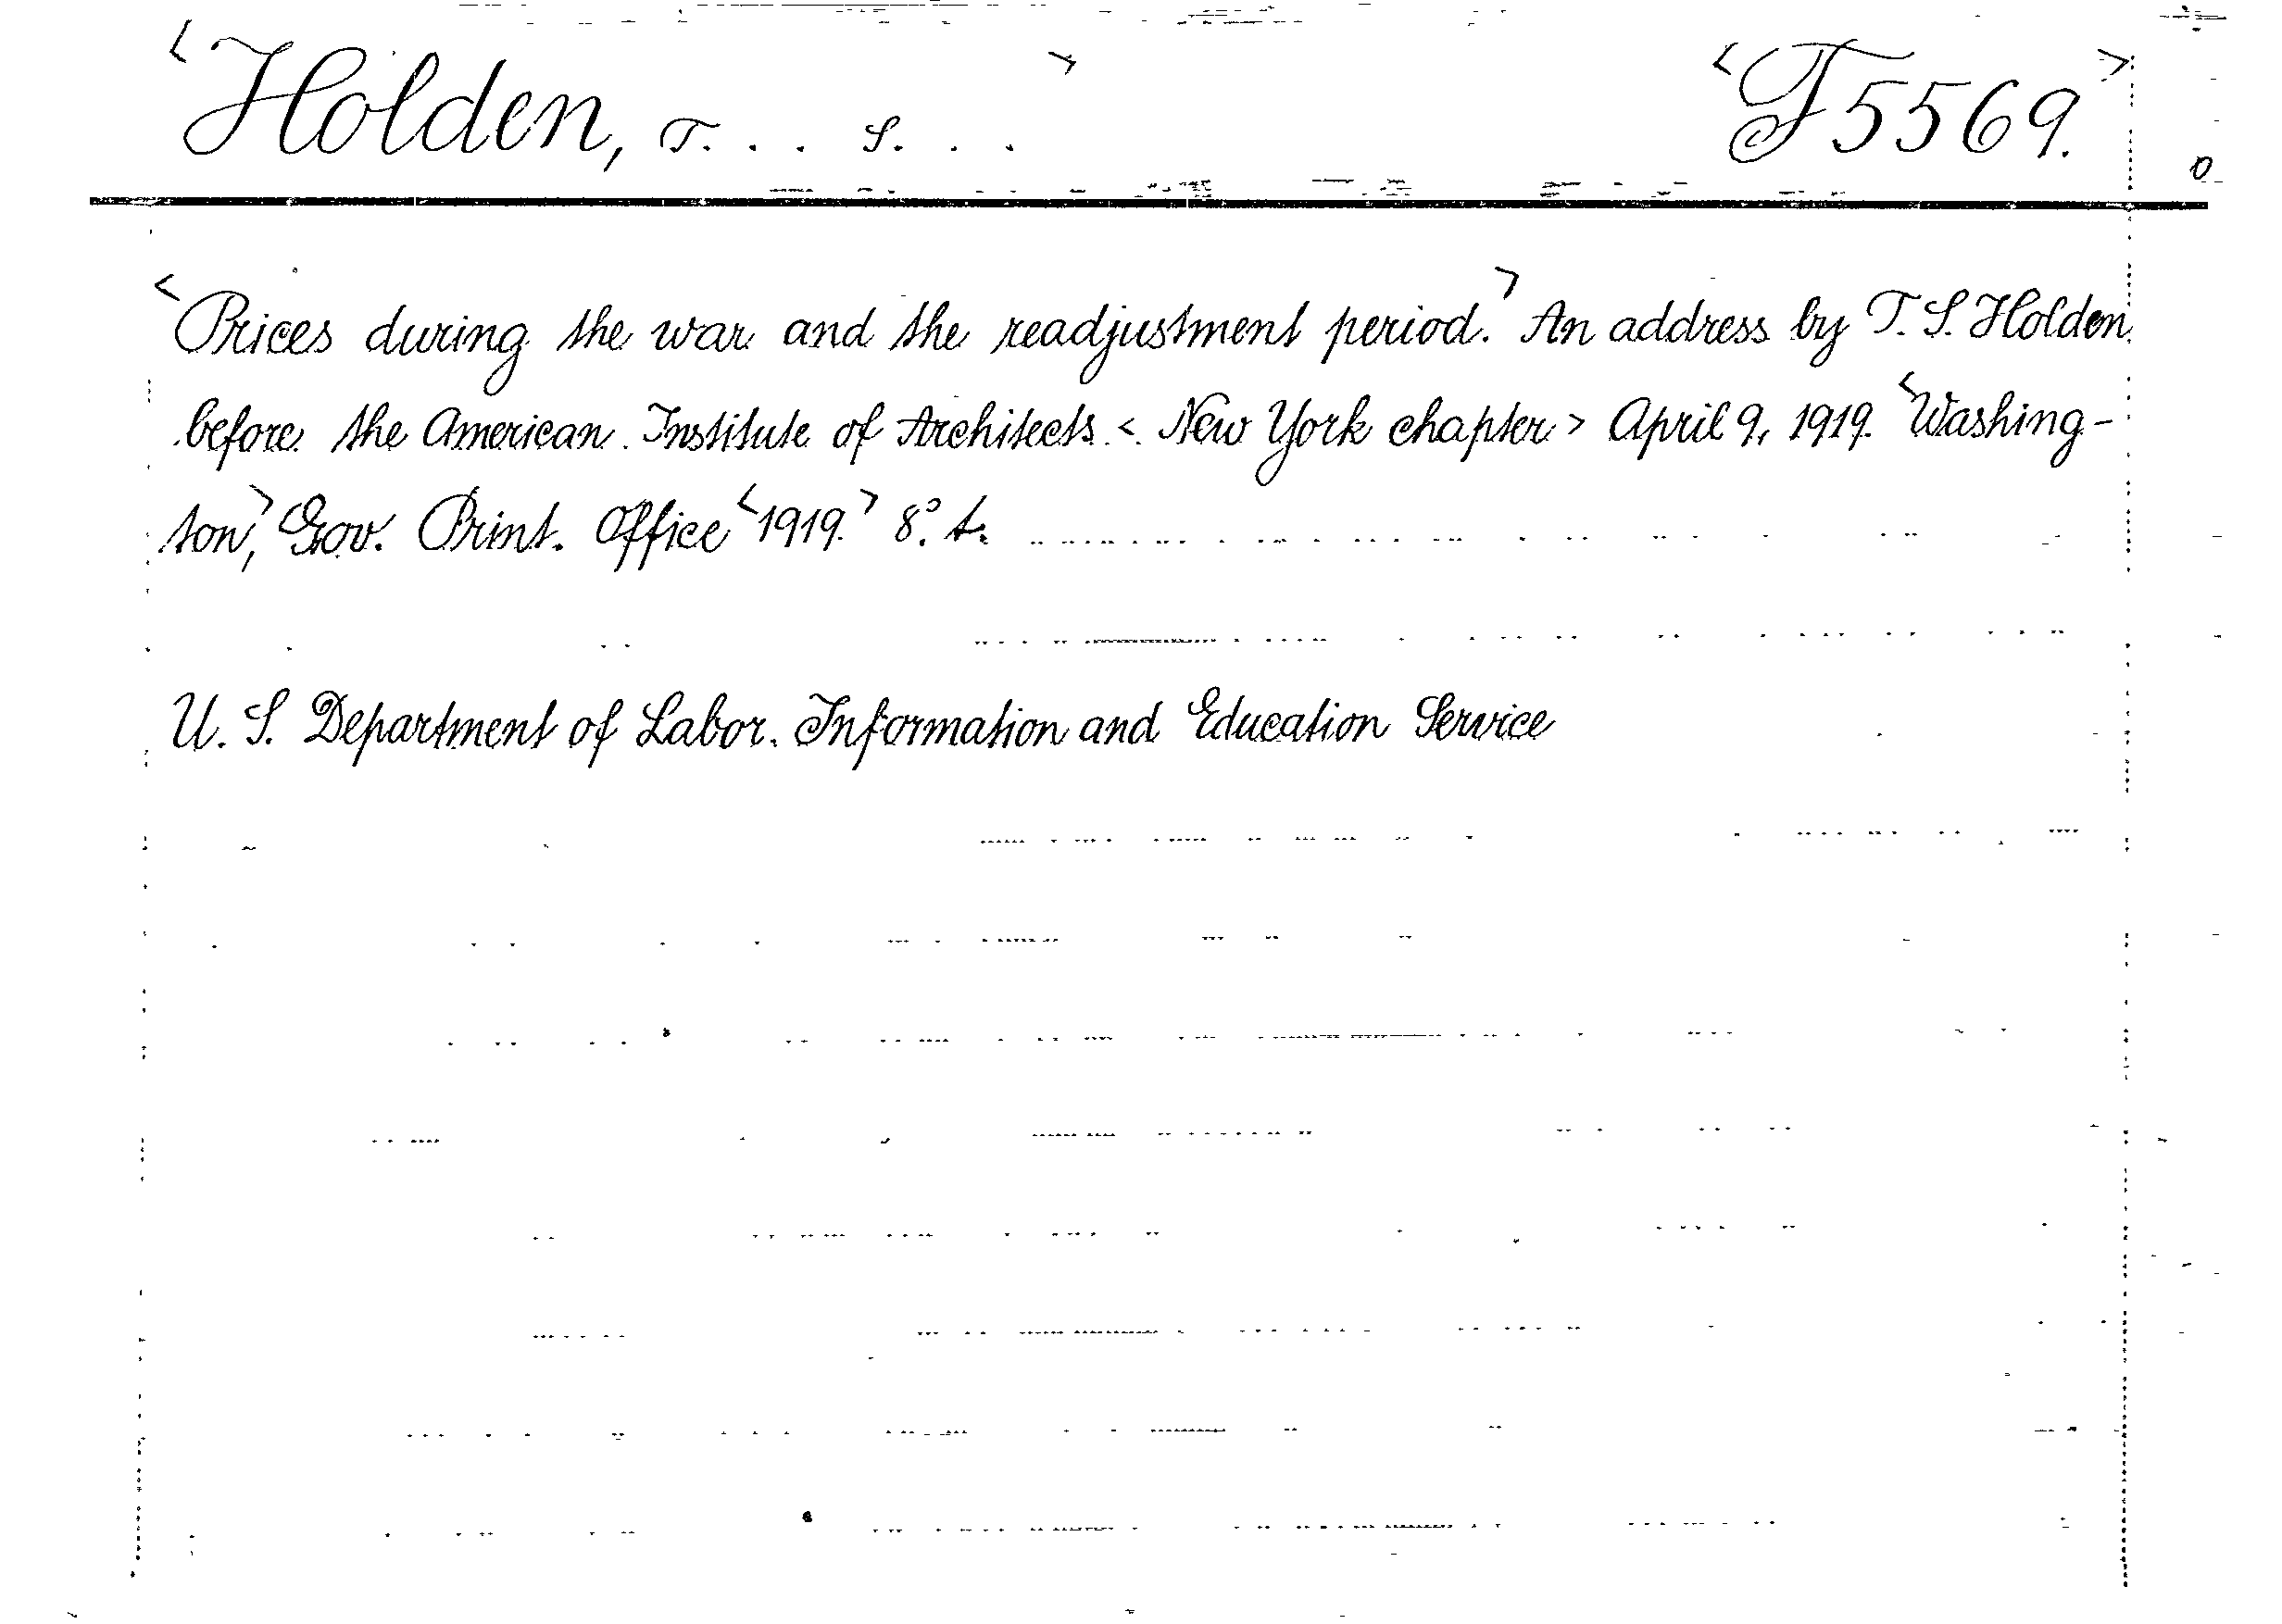 <Holden, T... S...> <F5569.>
0
<Prices during the war and the readjustment period.> An address by T. S. Holden
before the American Institute of Architects < New York chapter > April 9, 1919. <Washing-
ton,> Gov. Print. Office <1919.> 8°. t.
U. S. Department of Labor. Information and Education Service